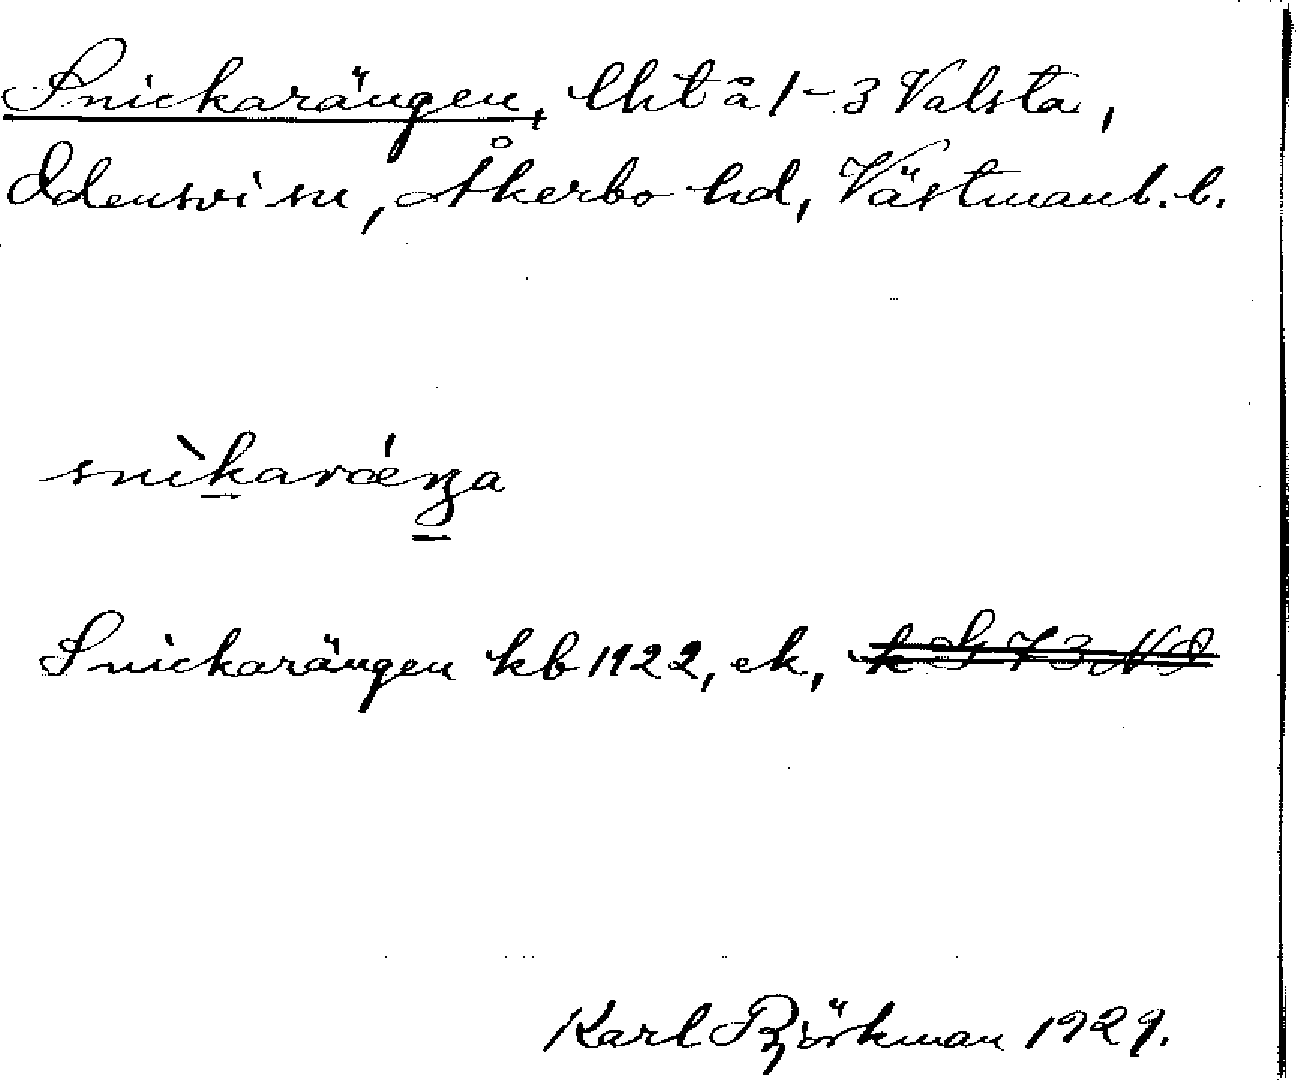 Snickarängen, lht å 1-3 Valsta,
Odensvi sn, Åkerbo hd, Västmanl. l.
snìkaráŋa
Snickarängen kb 1922, ek, k G 73 NO
Karl Björkman 1929.